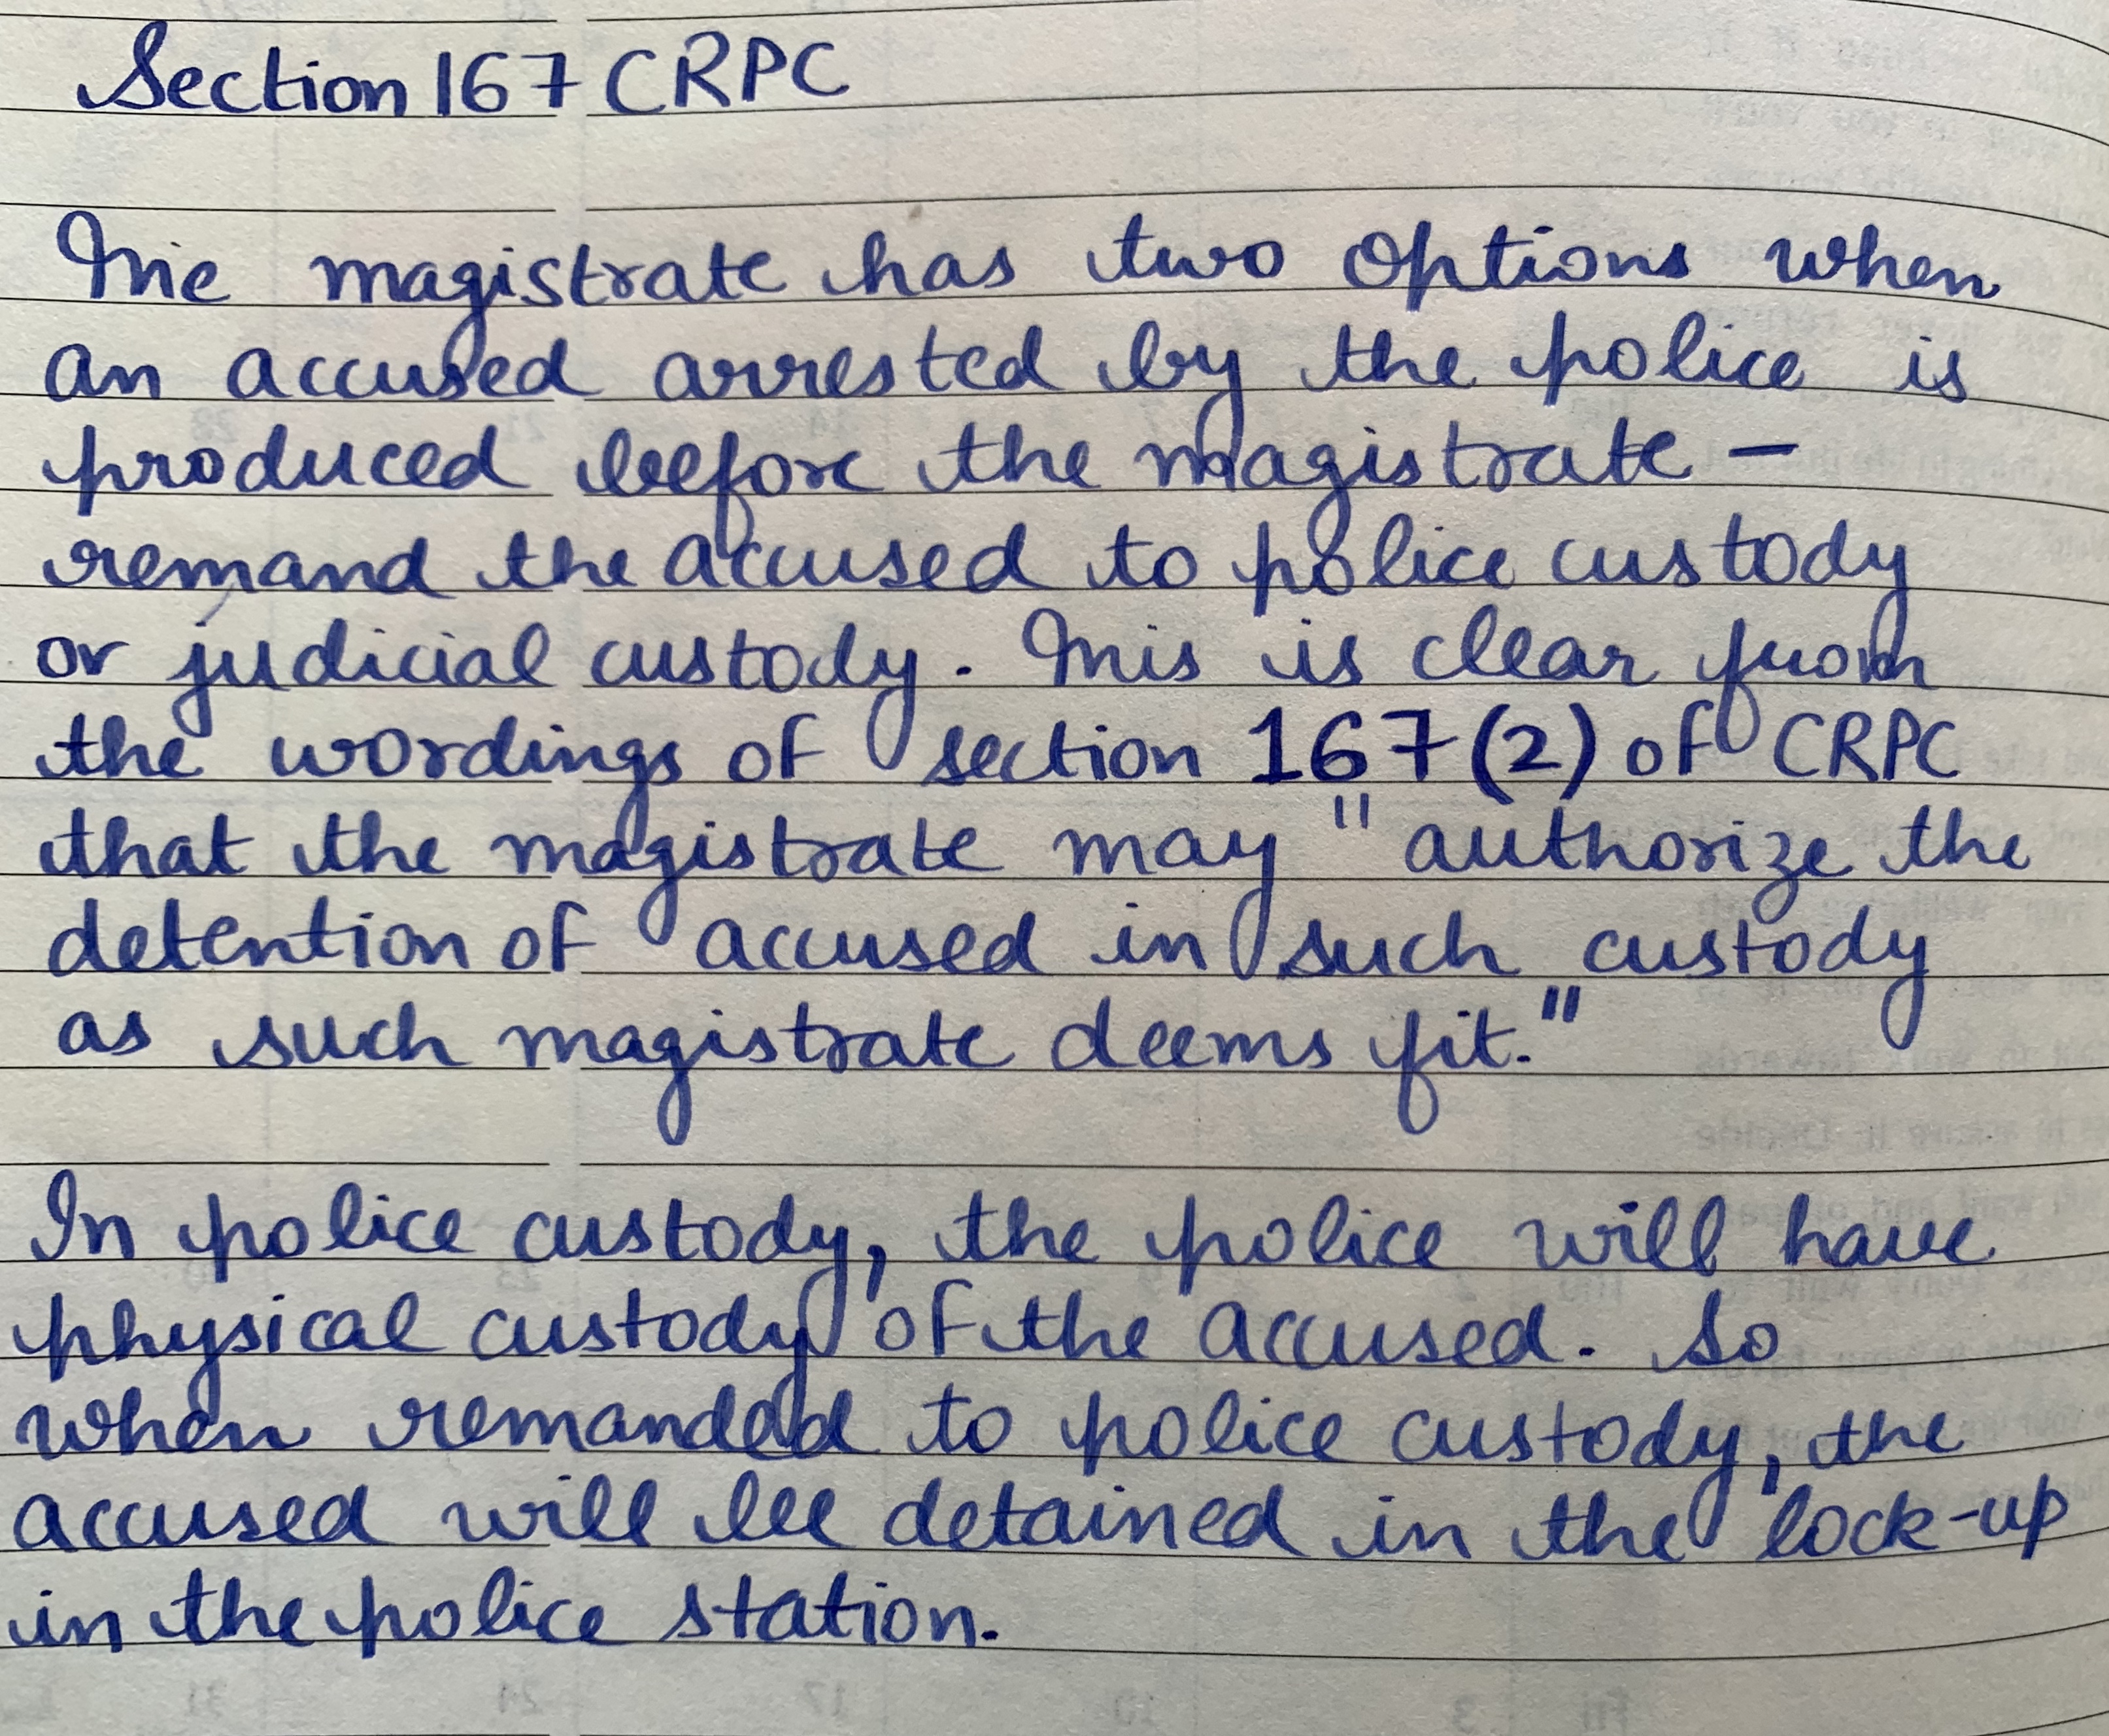 Section 167 CRPC
The magistrate has two options when
an accused arrested by the police is
produced before the magistrate -
remand the accused to police custody
or judicial custody. This is clear from
the wordings of section 167 (2) of CRPC
that the magistrate may "authorize the
detention of accused in such custody
as such magistrate deems fit."
In police custody, the police will have
physical custody of the accused. So
when remanded to police custody, the
accused will be detained in the lock-up
in the police station.